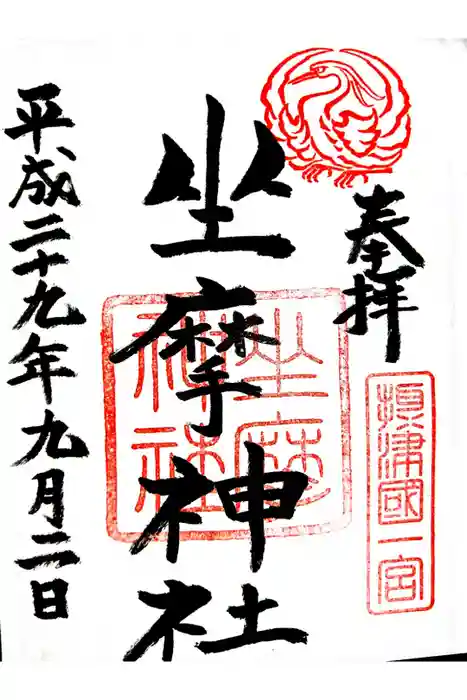 奉拝
摂津國一宮
坐摩神社
坐摩神社
平成二十九年九月二日